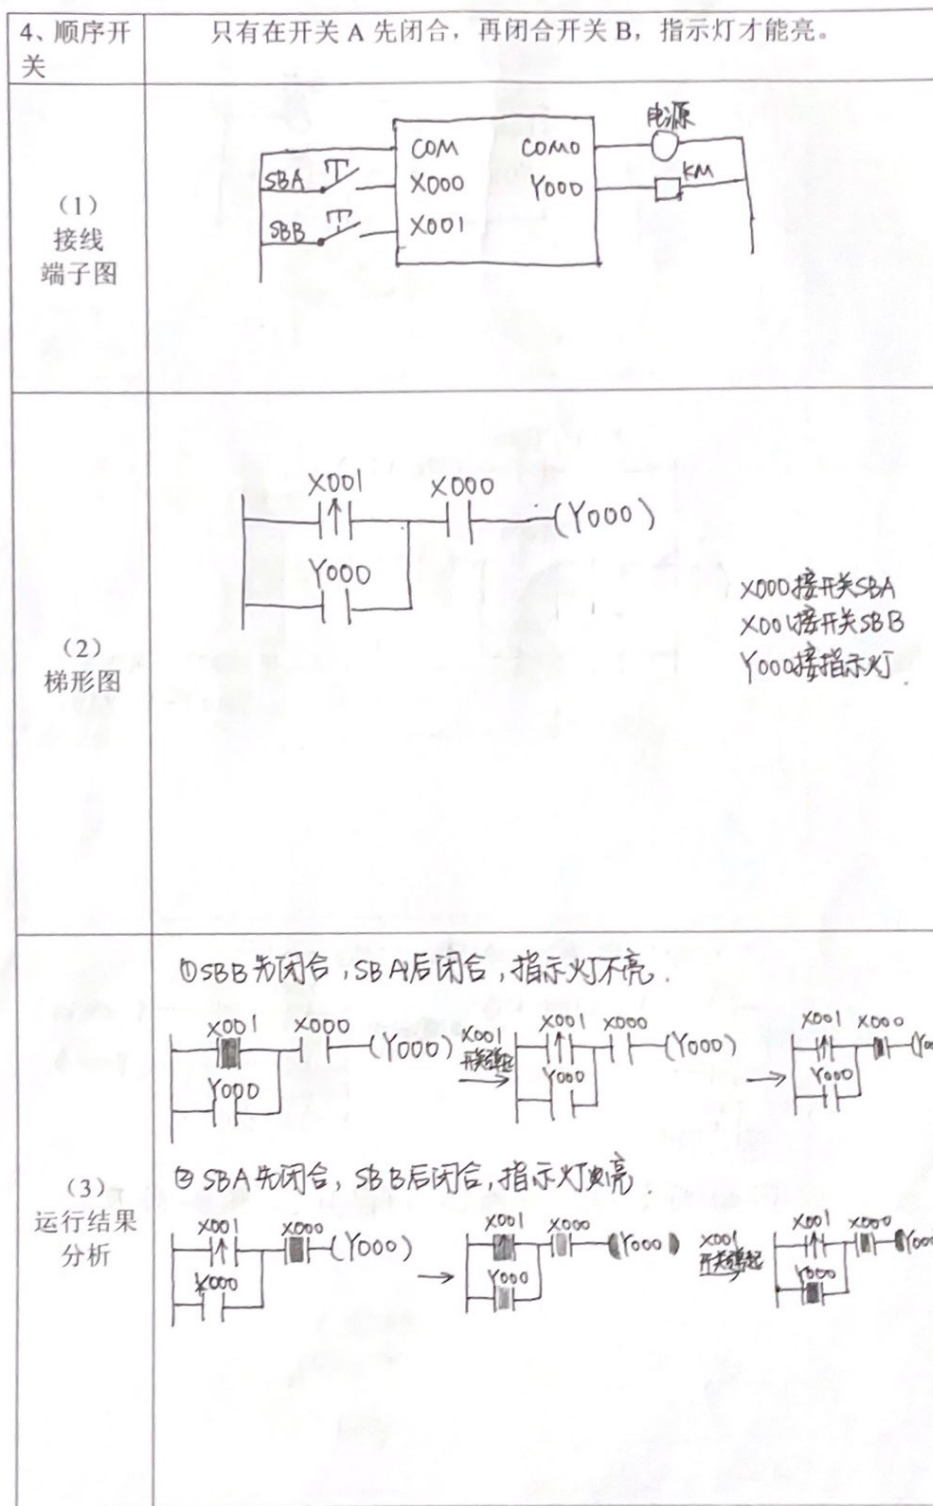 4、顺序开
关
只有在开关 A 先闭合，再闭合开关 B，指示灯才能亮。
（1）
接线
端子图
电源
COM COM0
SBA X000 Y000 KM
SBB X001
（2）
梯形图
X001 X000
(Y000)
Y000
X000接开关SBA
X001接开关SBB
Y000接指示灯.
（3）
运行结果
分析
①SBB先闭合,SBA后闭合,指示灯不亮.
X001 X000 (Y000)
Y000
X001
开关弹起
X001 X000 (Y000)
Y000
X001 X000
Y000
②SBA先闭合,SBB后闭合,指示灯亮.
X001 X000 (Y000)
Y000
X001 X000 (Y000)
Y000
X001
开关弹起
X001 X000
Y000